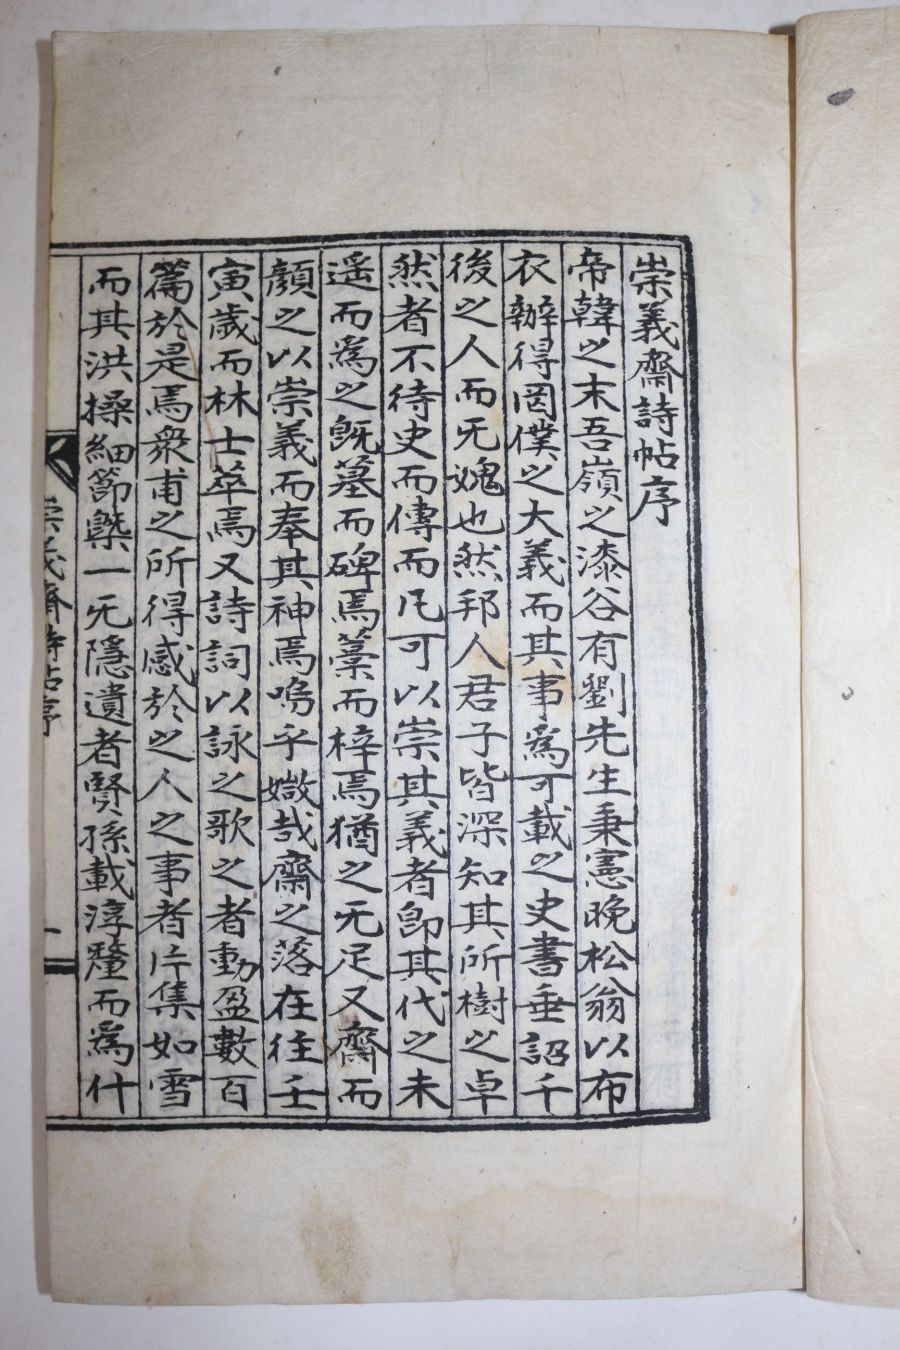 崇義齋詩帖序
帝韓之末吾嶺之漆谷有劉先生秉憲晩松翁以布
衣辦得罔僕之大義而其事爲可載之史書垂詔千
後之人而无媿也然邦人君子皆深知其所樹之卓
然者不待史而傳而凡可以崇其義者卽其代之未
遥而爲之旣墓而碑焉藁而梓焉猶之无足又齋而
顔之以崇義而奉其神焉嗚乎媺哉齋之落在徃壬
寅歲而林士萃焉又詩詞以詠之歌之者動盈數百
篇於是焉衆甫之所得感於之人之事者片集如雪
而其洪操細節槩一无隱遺者賢孫載淳釐而爲什
崇義齋詩帖序
一